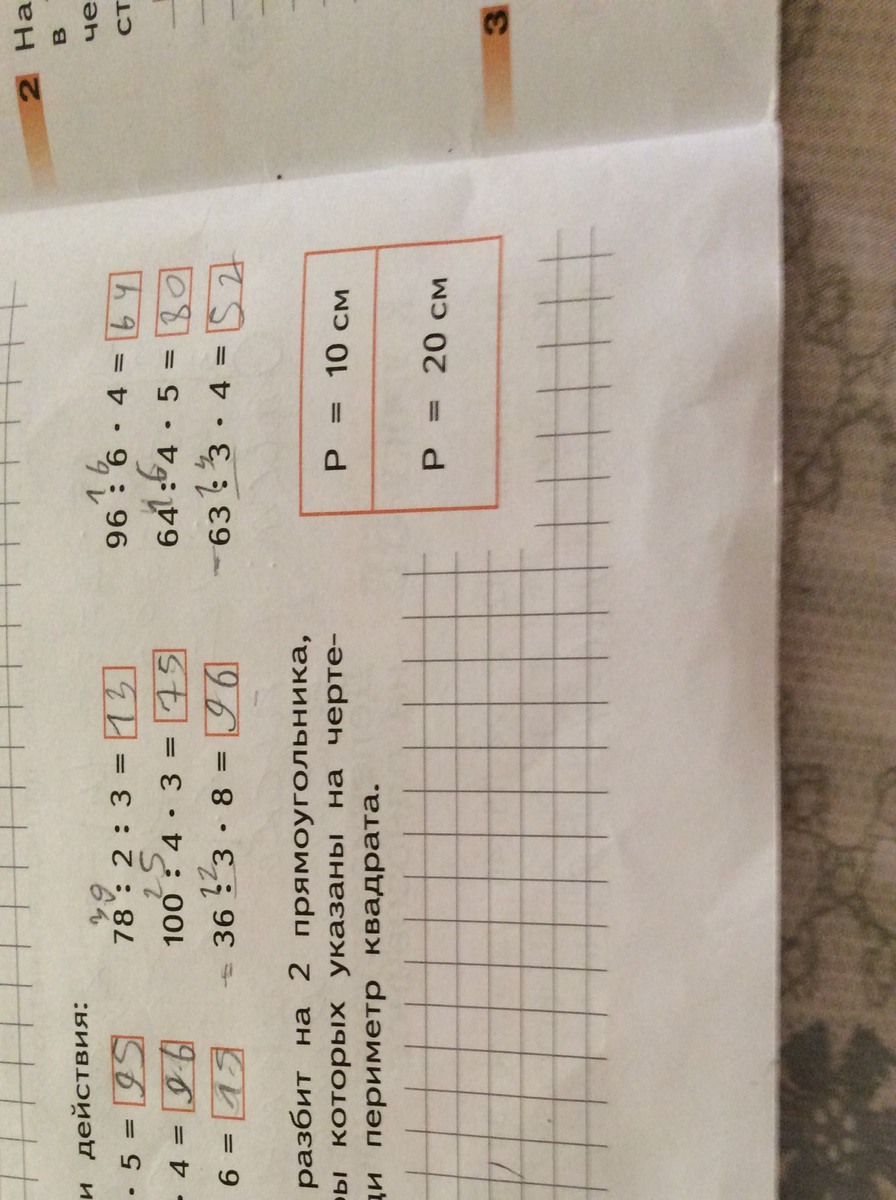 и действия:
39 16
· 5 = 95 78 : 2 : 3 = 13 96 : 6 · 4 = 64
25 16
· 4 = 96 100 : 4 · 3 = 75 64 : 4 · 5 = 80
12
6 = 15 36 : 3 · 8 = 96 63 : 3 · 4 = 52
разбит на 2 прямоугольника,
ы которых указаны на черте-
ди периметр квадрата.
P = 10 см
P = 20 см
2 На
в
че
ст
3